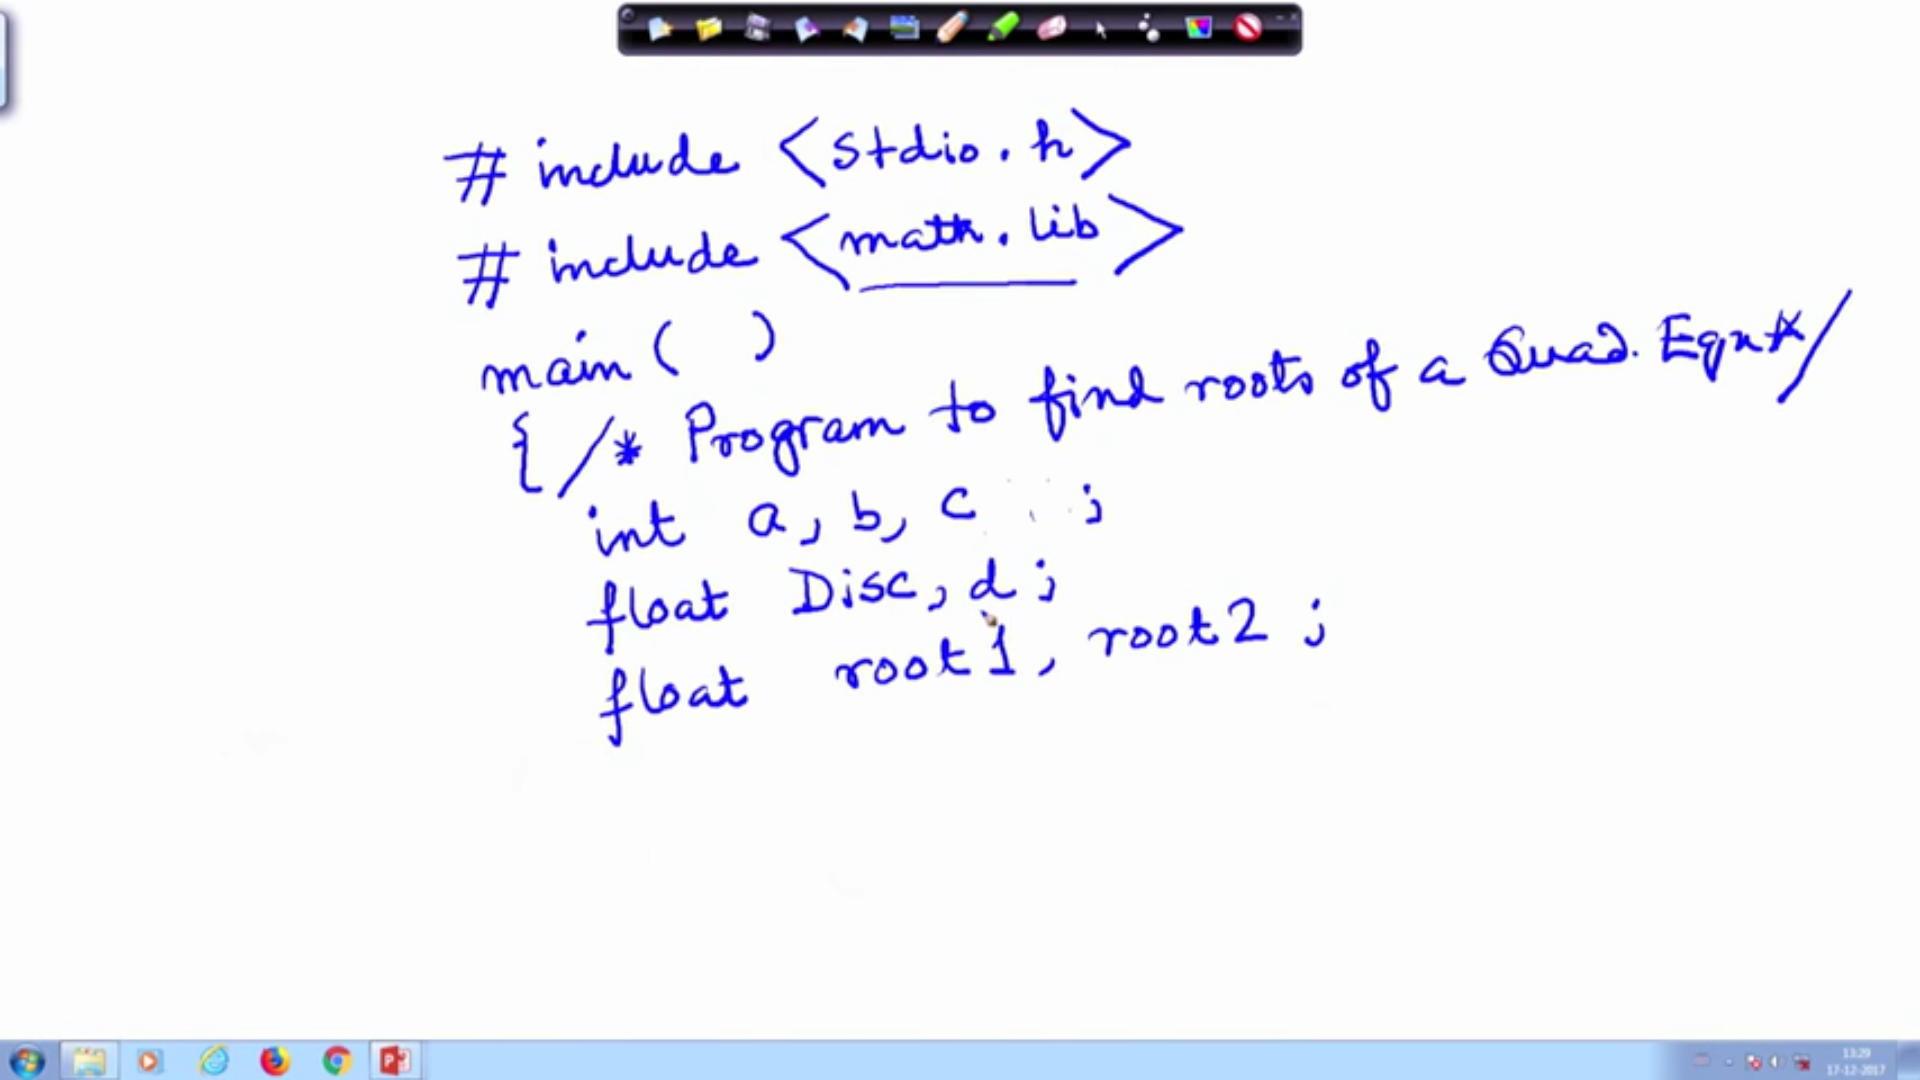 # include <stdio.h>
# include <math.lib>
main( )
{ /* Program to find roots of a Quad. Eqn */
int a, b, c ;
float Disc, d ;
float root1, root2 ;
13:29
17-12-2017